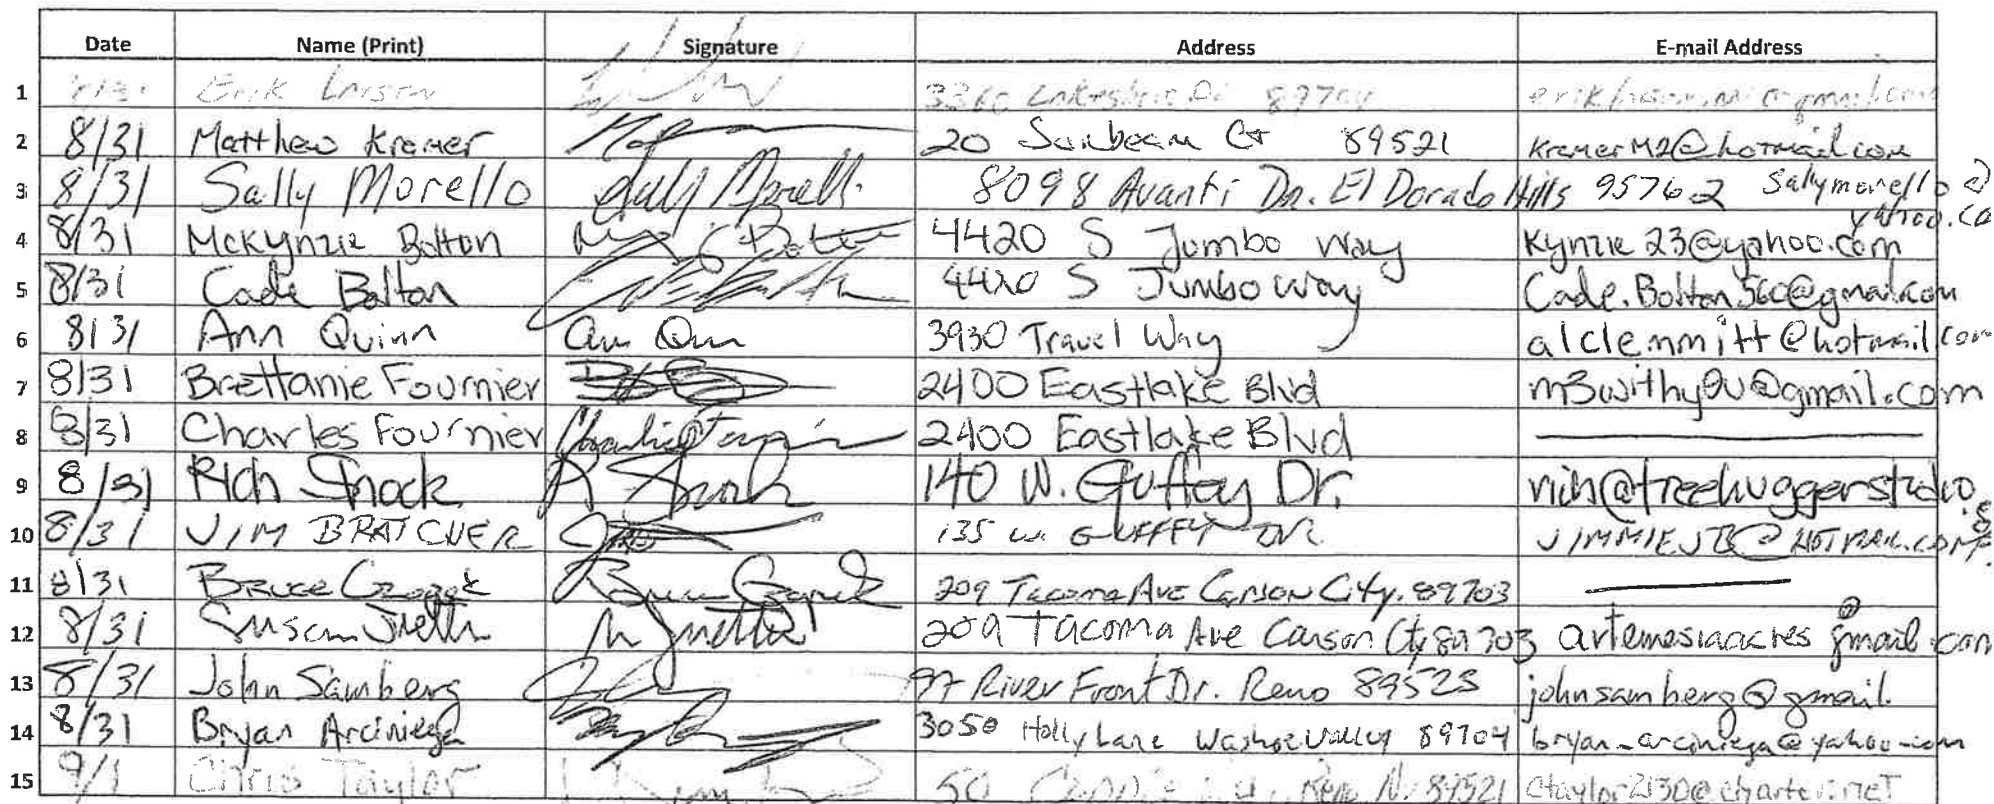 Date Name (Print) Signature Address E-mail Address
1 Erik Larson 89704
2 8/31 Matthew Kramer 20 Sunbeam Ct 89521 KramerM2@hotmail.com
3 8/31 Sally Morello Sally Morello 8098 Avanti Dr. El Dorado Hills 95762 Sallymorello@
yahoo.co
4 8/31 McKynzie Bolton 4420 S Jumbo Way Kynzie23@yahoo.com
5 8/31 Cade Bolton 4420 S Jumbo Way Cade.Bolton560@gmail.com
6 8/31 Ann Quinn Ann Quinn 3930 Travel Way alclemmitt@hotmail.com
7 8/31 Brettanie Fournier 2400 Eastlake Blvd
8 8/31 Charles Fournier 2400 Eastlake Blvd
9 8/31 Rich 140 W. Guffey Dr. rich@treehuggerstudio
10 8/31 JIM BRATCHER 135 W. GUFFEY DR JIMMIEJB@HOTMAIL.COM
11 8/31 Bruce 209 Tacoma Ave Carson City. 89703
12 8/31 Susan 209 Tacoma Ave Carson Cty 89703 artemesiaacres@gmail.com
13 8/31 John Samberg 97 River Front Dr. Reno 89523 johnsamberg@gmail.
14 8/31 Bryan Arciniega 3050 Holly Lane Washoe Valley 89704 bryan_arciniega@yahoo.com
15 9/1 Chris Taylor 50 Reno Nv 89521 ctaylor2130@charter.net